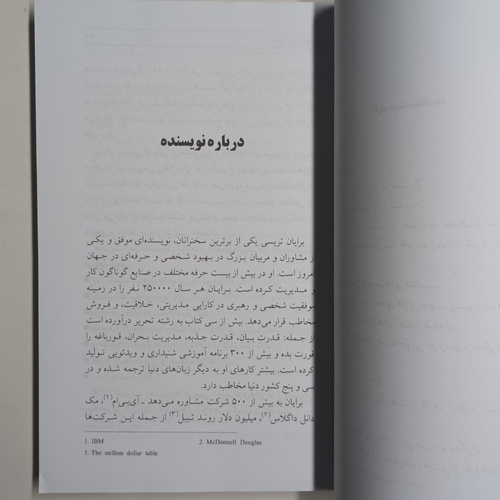 درباره نویسنده
برایان تریسی یکی از برترین سخنرانان، نویسنده‌ای موفق و یکی
از مشاوران و مربیان بزرگ در بهبود شخصی و حرفه‌ای در جهان
امروز است. او در بیش از بیست حرفه مختلف در صنایع گوناگون کار
و مدیریت کرده است. برایان هر سال ۲۵۰۰۰۰ نفر را در زمینه
موفقیت شخصی و رهبری در کارایی مدیریتی، خلاقیت، و فروش
مخاطب قرار می‌دهد. بیش از سی کتاب به رشته تحریر درآورده است
از جمله: قدرت بیان، قدرت جذبه، مدیریت بحران، قورباغه را
قورت بده و بیش از ۳۰۰ برنامه آموزشی شنیداری و ویدئویی تولید
کرده است. بیشتر کارهای او به دیگر زبان‌های دنیا ترجمه شده و در
سی و پنج کشور دنیا مخاطب دارد.
برایان به بیش از ۵۰۰ شرکت مشاوره می‌دهد ـ آی‌بی‌ام(۱)، مک
دانل داگلاس(۲)، میلیون دلار روند تیبل(۳) از جمله این شرکت‌ها
1. IBM 2. McDonnell Douglas
3. The million dollar table